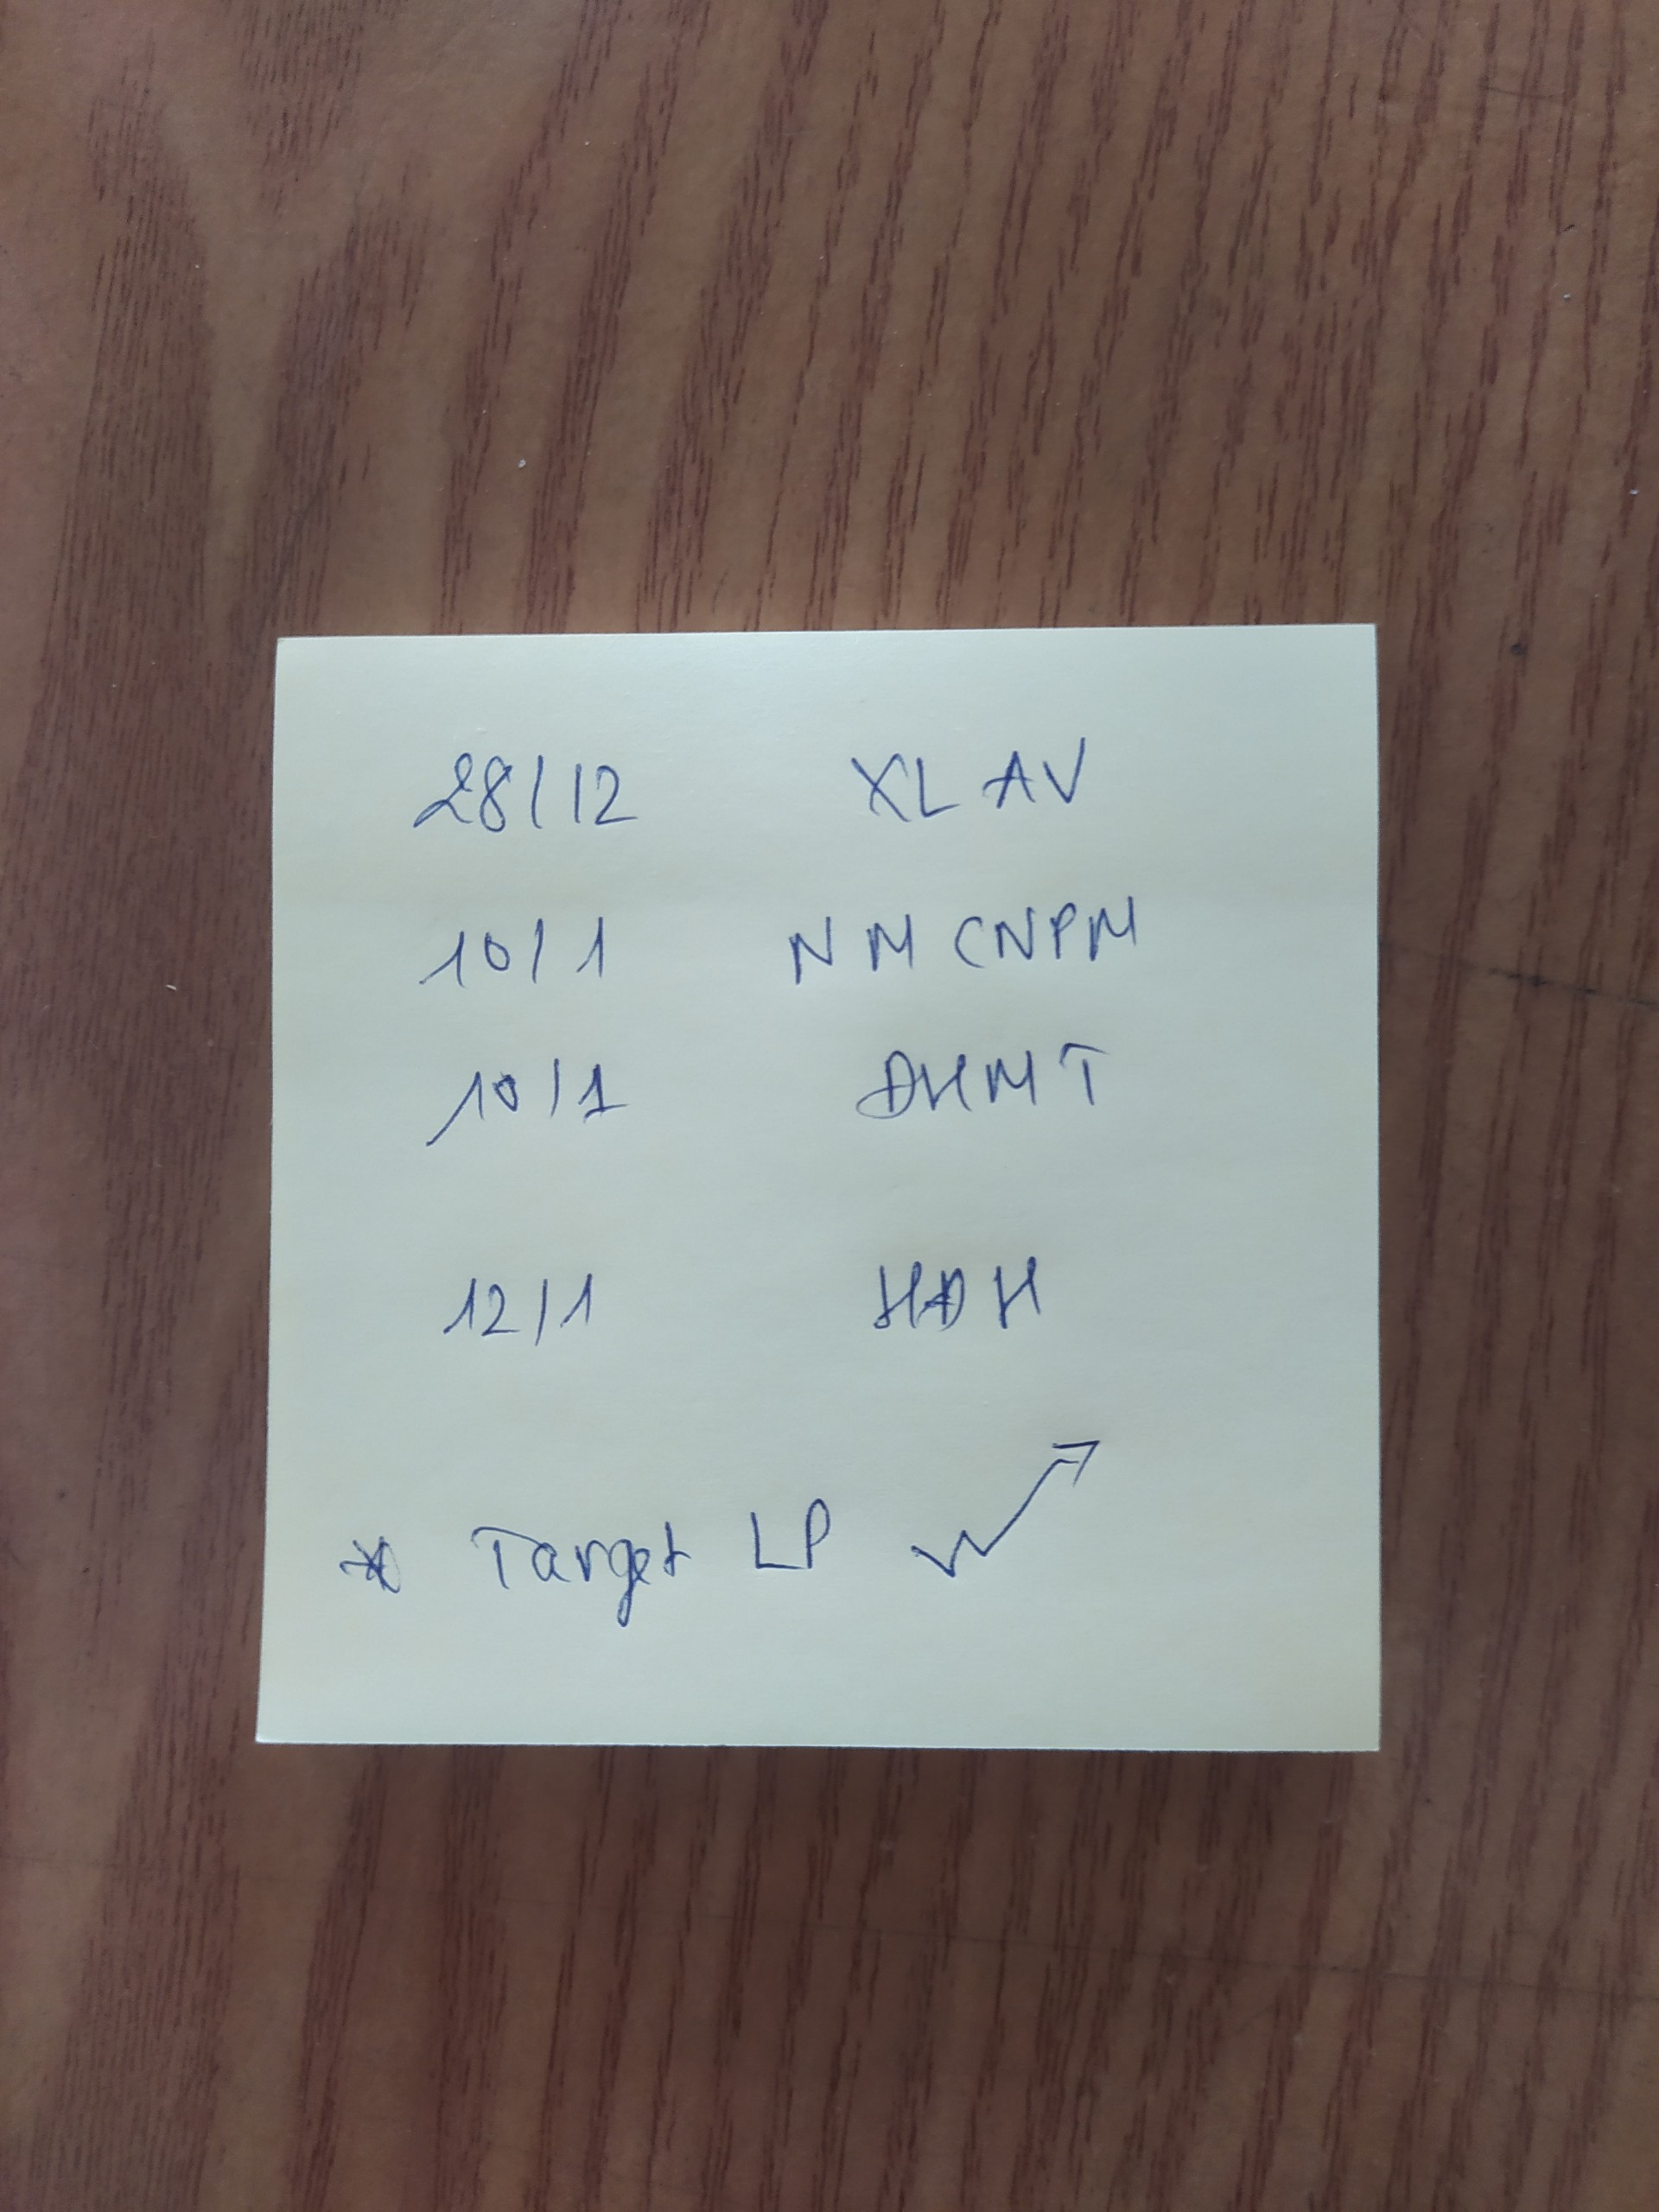 28/12 XL AV
10/1 NM CNPM
10/1 ĐHMT
12/1 HĐH
* Target LP